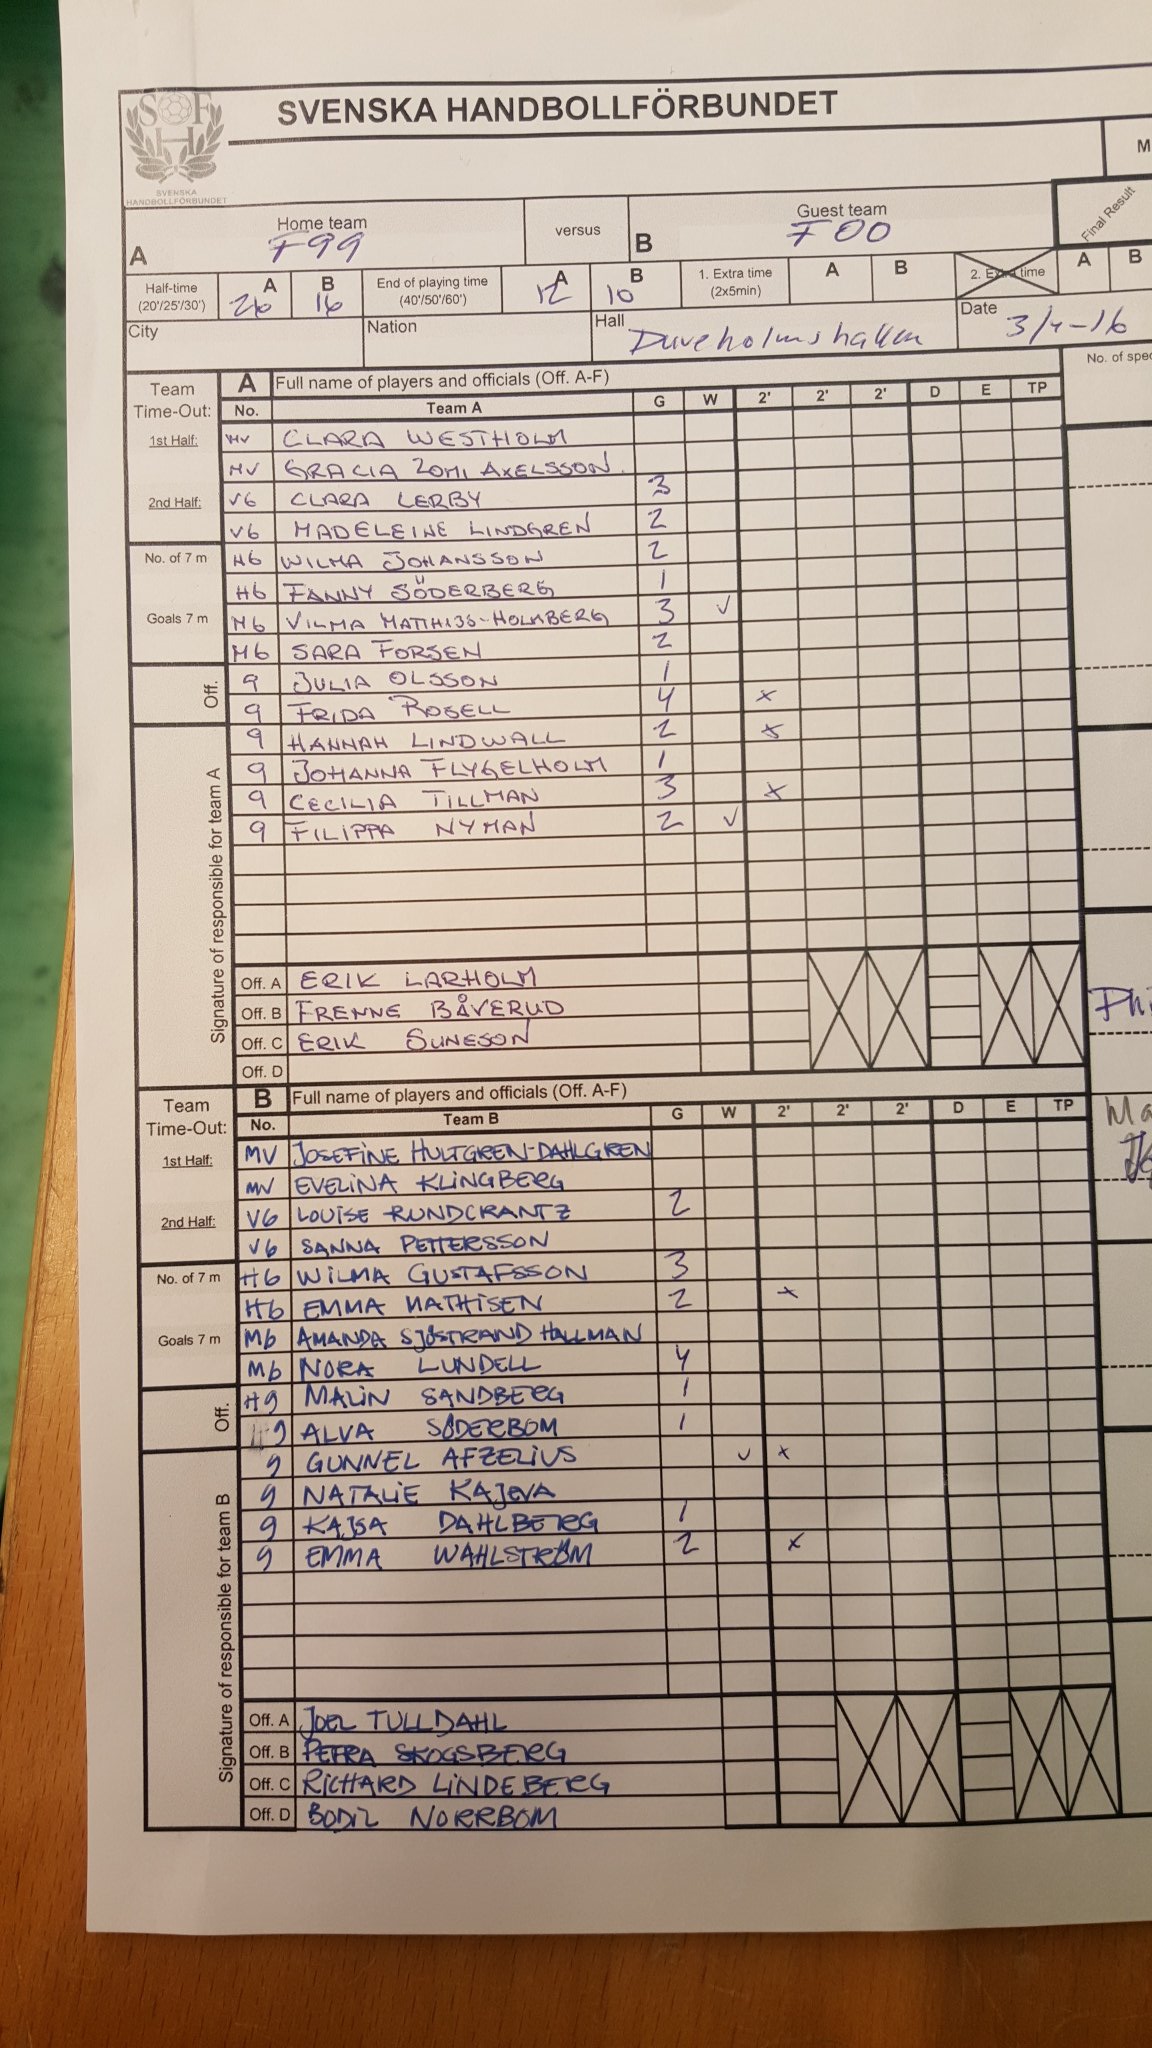 SVENSKA HANDBOLLFÖRBUNDET
SHF
SVENSKA
HANDBOLLFÖRBUNDET
M
A Home team F99 versus B Guest team F00 Final Result
Half-time (20'/25'/30') A 26 B 16 End of playing time (40'/50'/60') A 12 B 10 1. Extra time (2x5min) A B 2. Extra time A B
City Nation Hall Duveholmshallen Date 3/4-16
No. of spe
Team Time-Out: A Full name of players and officials (Off. A-F)
No. Team A G W 2' 2' 2' D E TP
1st Half: MV CLARA WESTHOLM
MV GRACIA ZOMI AXELSSON
2nd Half: V6 CLARA LERBY 3
V6 MADELEINE LINDGREN 2
No. of 7 m H6 WILMA JOHANSSON 2
H6 FANNY SÖDERBERG 1
Goals 7 m M6 VILMA MATTHISS-HOLMBERG 3 v
M6 SARA FORSEN 2
Off. 9 JULIA OLSSON 1
9 FRIDA ROSELL 4 x
9 HANNAH LINDWALL 2 x
9 JOHANNA FLYGELHOLM 1
9 CECILIA TILLMAN 3 x
9 FILIPPA NYMAN 2 v
Signature of responsible for team A
Off. A ERIK LARHOLM
Off. B FRENNE BÅVERUD
Off. C ERIK SUNESON
Off. D
Team Time-Out: B Full name of players and officials (Off. A-F)
No. Team B G W 2' 2' 2' D E TP
1st Half: MV JOSEFINE HULTGREN-DAHLGREN
MV EVELINA KLINGBERG
2nd Half: V6 LOUISE RUNDCRANTZ 2
V6 SANNA PETTERSSON
No. of 7 m H6 WILMA GUSTAFSSON 3
H6 EMMA MATHISEN 2 x
Goals 7 m M6 AMANDA SJÖSTRAND HALLMAN
M6 NORA LUNDELL 4
Off. H9 MALIN SANDBERG 1
9 ALVA SÖDERBOM 1
9 GUNNEL AFZELIUS v x
9 NATALIE KAJEVA
9 KAJSA DAHLBERG 1
9 EMMA WAHLSTRÖM 2 x
Signature of responsible for team B
Off. A JOEL TULLDAHL
Off. B PETRA SKOGSBERG
Off. C RICHARD LINDEBERG
Off. D BODIL NORRBOM